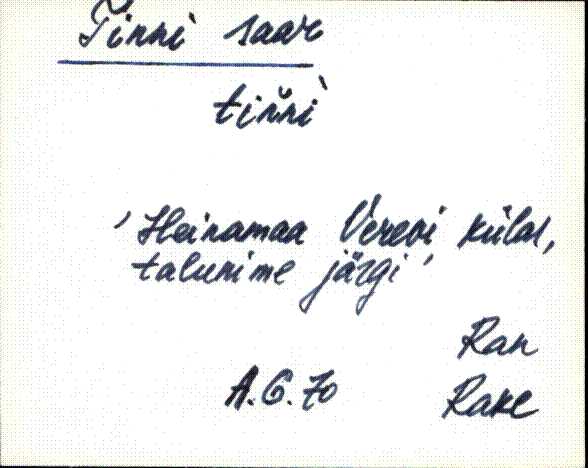 Tinni` saar
tiňni`
' Heinamaa Verevi külas,
talunime järgi '
Ran
A.G.70 Rake